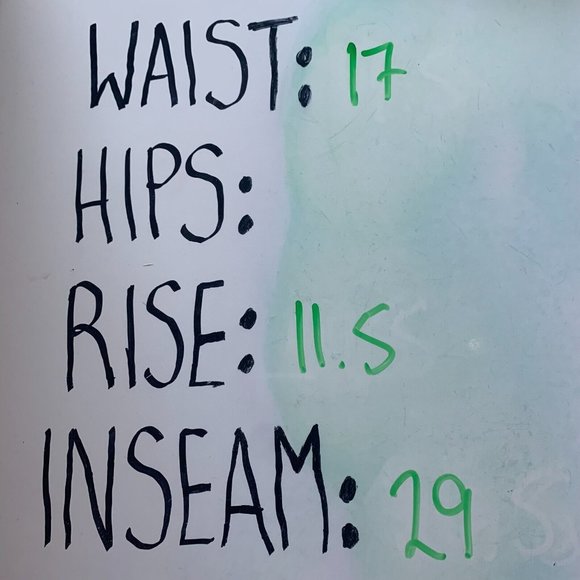 WAIST: 17
HIPS:
RISE: 11.5
INSEAM: 29